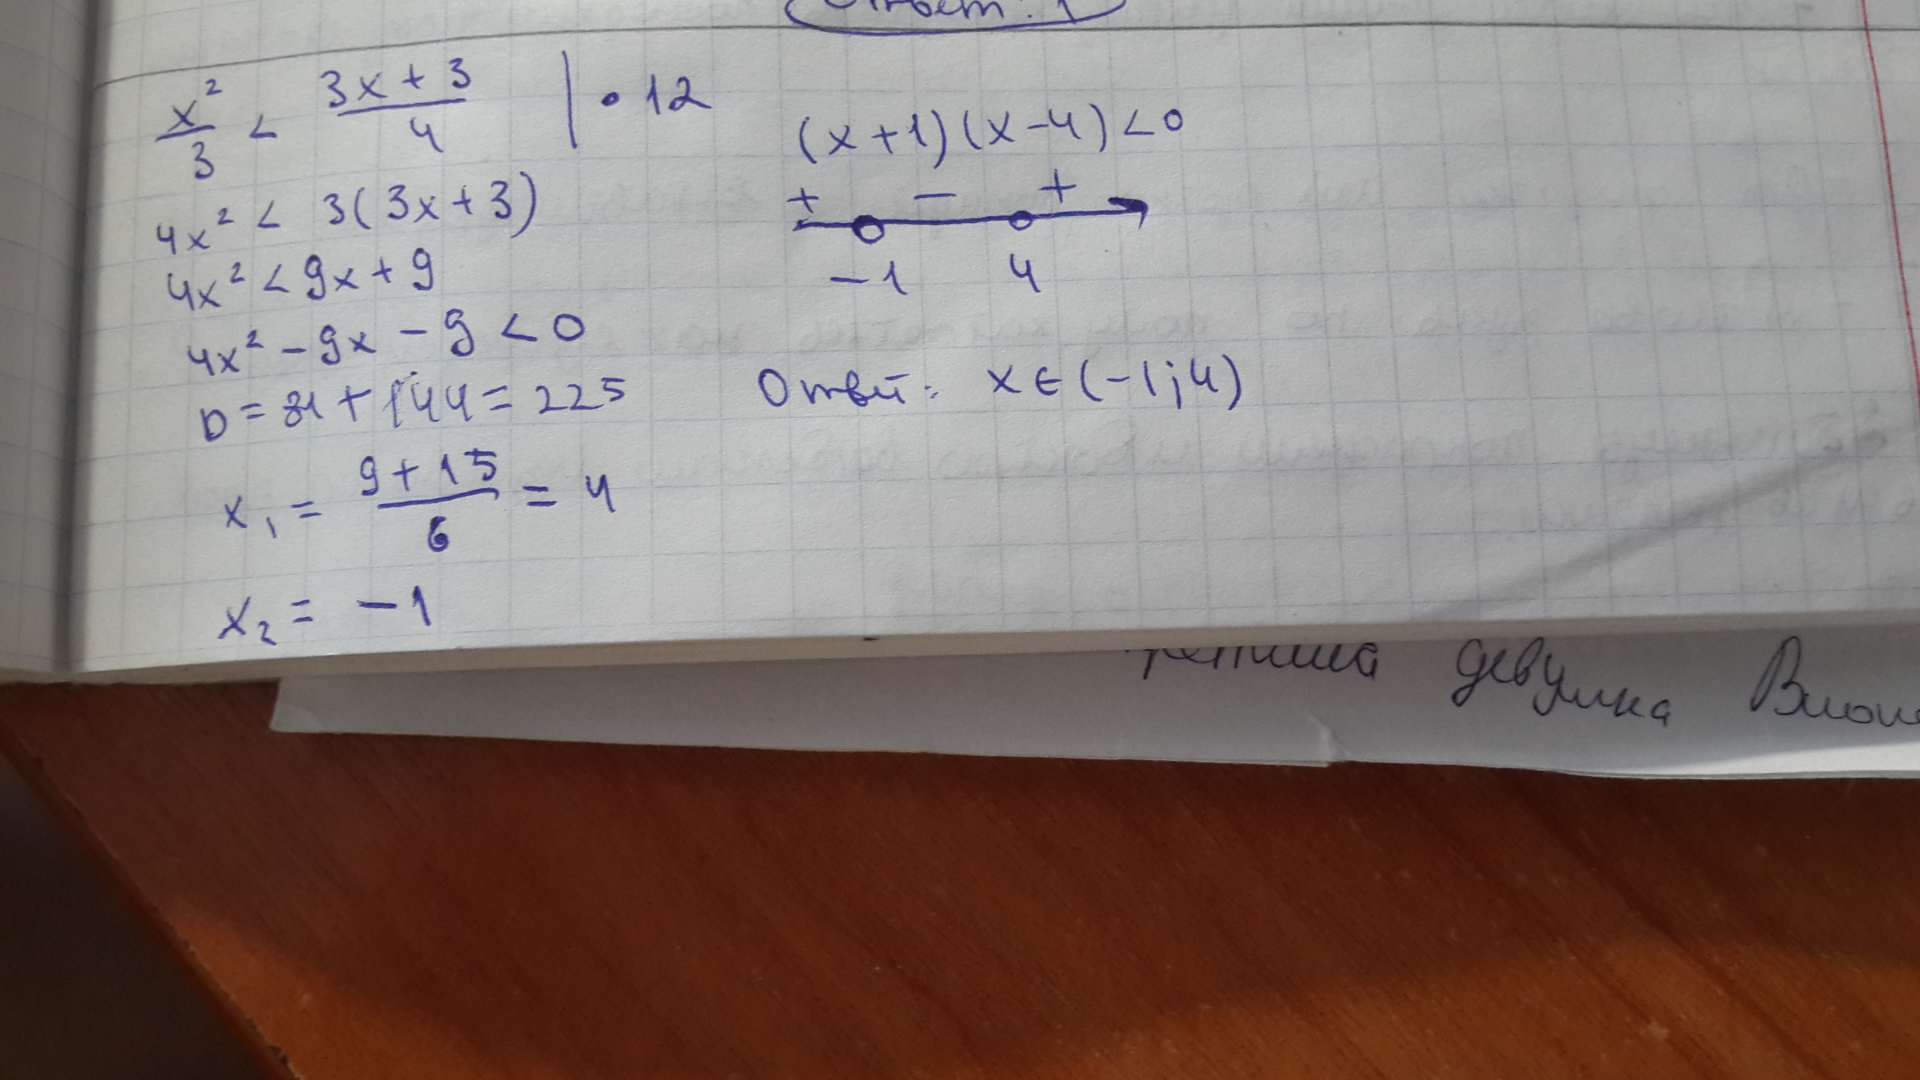 Ответ: 1
x²/3 < (3x + 3)/4 | • 12
4x² < 3(3x + 3)
4x² < 9x + 9
4x² - 9x - 9 < 0
D = 81 + 144 = 225
x₁ = (9 + 15)/6 = 4
x₂ = -1
(x + 1)(x - 4) < 0
+ - +
-1 4
Ответ: x ∈ (-1; 4)
девушка